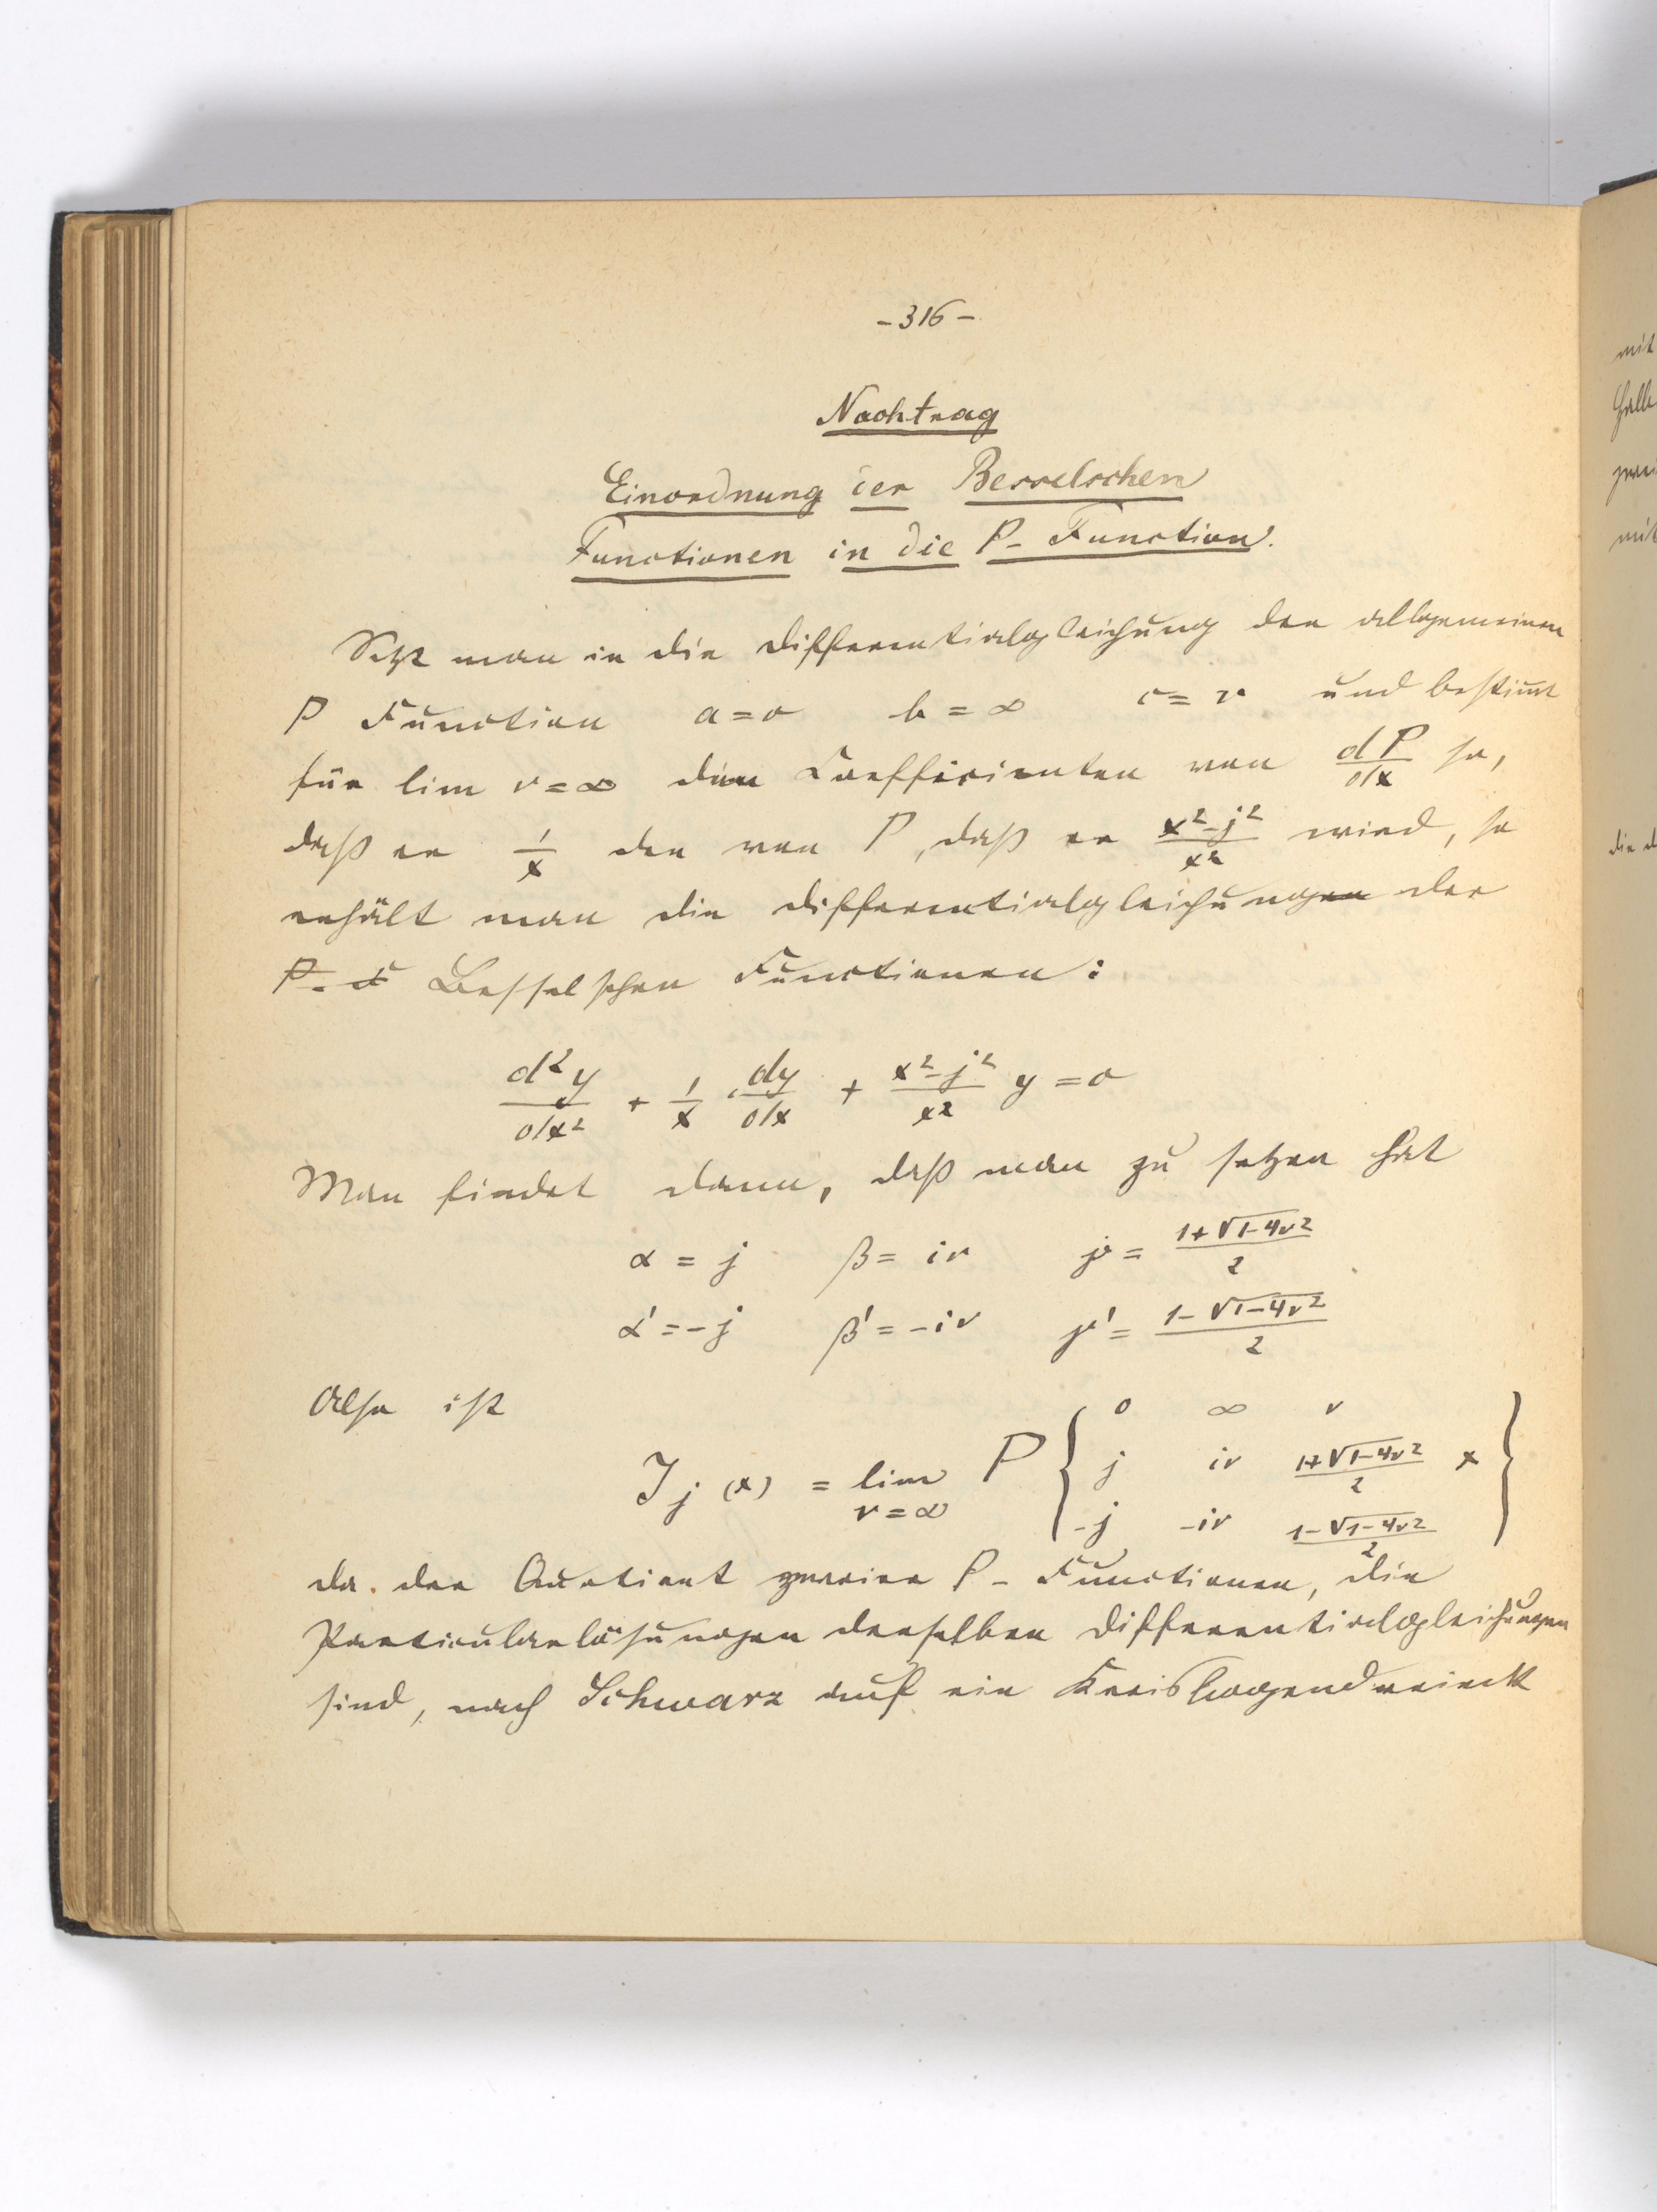 - 316 -
Nachtrag
Einordnung der Besselschen
Functionen in die P- Function.
Setzt man in die Differentialgleichung der allgemeinen
P Function a = 0 b = ∞ c = ν und bestimt
für lim ν = ∞ den Coefficienten von dP/dx so,
daß er 1/x den von P, daß er (x²-j²)/x² wird, so
erhält man die Differentialgleichungen der
P. F Besselschen Functionen:
d²y/dx² + 1/x · dy/dx + (x²-j²)/x² y = 0
Man findet dann, daß man zu setzen hat
α = j β = iν γ = (1+√1-4ν²)/2
α' = -j β' = -iν γ' = (1-√1-4ν²)/2
Also ist
0 ∞ ν
J_j (x) = lim_{ν=∞} P { j iν (1+√1-4ν²)/2 x }
-j -iν (1-√1-4ν²)/2
da der Quotient zweier P- Functionen, die
Particularlösungen derselben Differentialgleichungen
sind, nach Schwarz auf ein Kreisbogendreieck
mit
die d